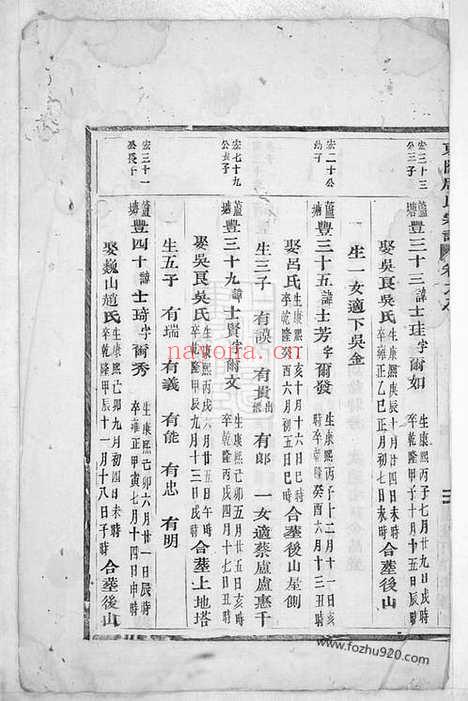 宏三十三
公三子
蘆塘豐三十三諱士珪字爾如 生康熙丙子七月廿九日戌時
卒乾隆甲子十月十五日辰時
娶吳良吳氏 生康熙庚辰十月廿四日未時
卒雍正乙巳正月初七日未時 合葬後山
生一女適下吳金
宏二十公
幼子
蘆塘豐三十五諱士芳字爾發 生康熙丙子十二月十一日亥
時卒乾隆癸酉六月十三丑時
娶呂氏 生康熙癸亥十月十六日巳時
卒乾隆癸酉六月初五日巳時 合葬後山屋側
生三子 有謨 有貴出繼 有郎 一女適蔡盧盧惠千
宏七十九
公長子
蘆塘豐三十九諱士賢字爾文 生康熙己卯五月廿五日亥
時卒乾隆戊子四月十七日丑時
娶吳良吳氏 生康熙丙戌六月廿五日午時
卒乾隆甲戌九月十三日戌時 合葬土地塔
生五子 有瑞 有義 有能 有忠 有明
宏三十一
公長子
蘆塘豐四十諱士琦字爾秀 生康熙己卯六月廿一日辰時
卒雍正甲寅七月十四日申時
娶巍山趙氏 生康熙己卯九月初四日未時
卒乾隆甲辰十一月十八日子時 合葬後山
nayona.cn
www.fozhu920.com